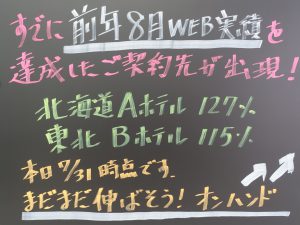 すでに前年8月WEB実績を
達成したご契約先が出現！
北海道Aホテル 127%
東北Bホテル 115%
本日7/31時点です。
まだまだ伸ばそう！オンハンド